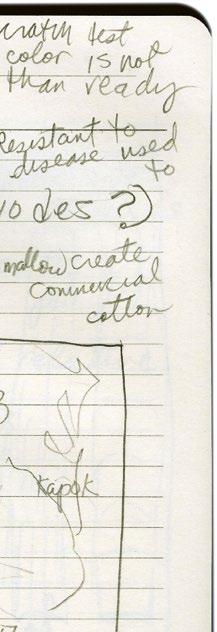 scratch test
color is not
than ready
resistant to
disease used
to
des ?)
mallow) create
commercial
cotton
Kapok